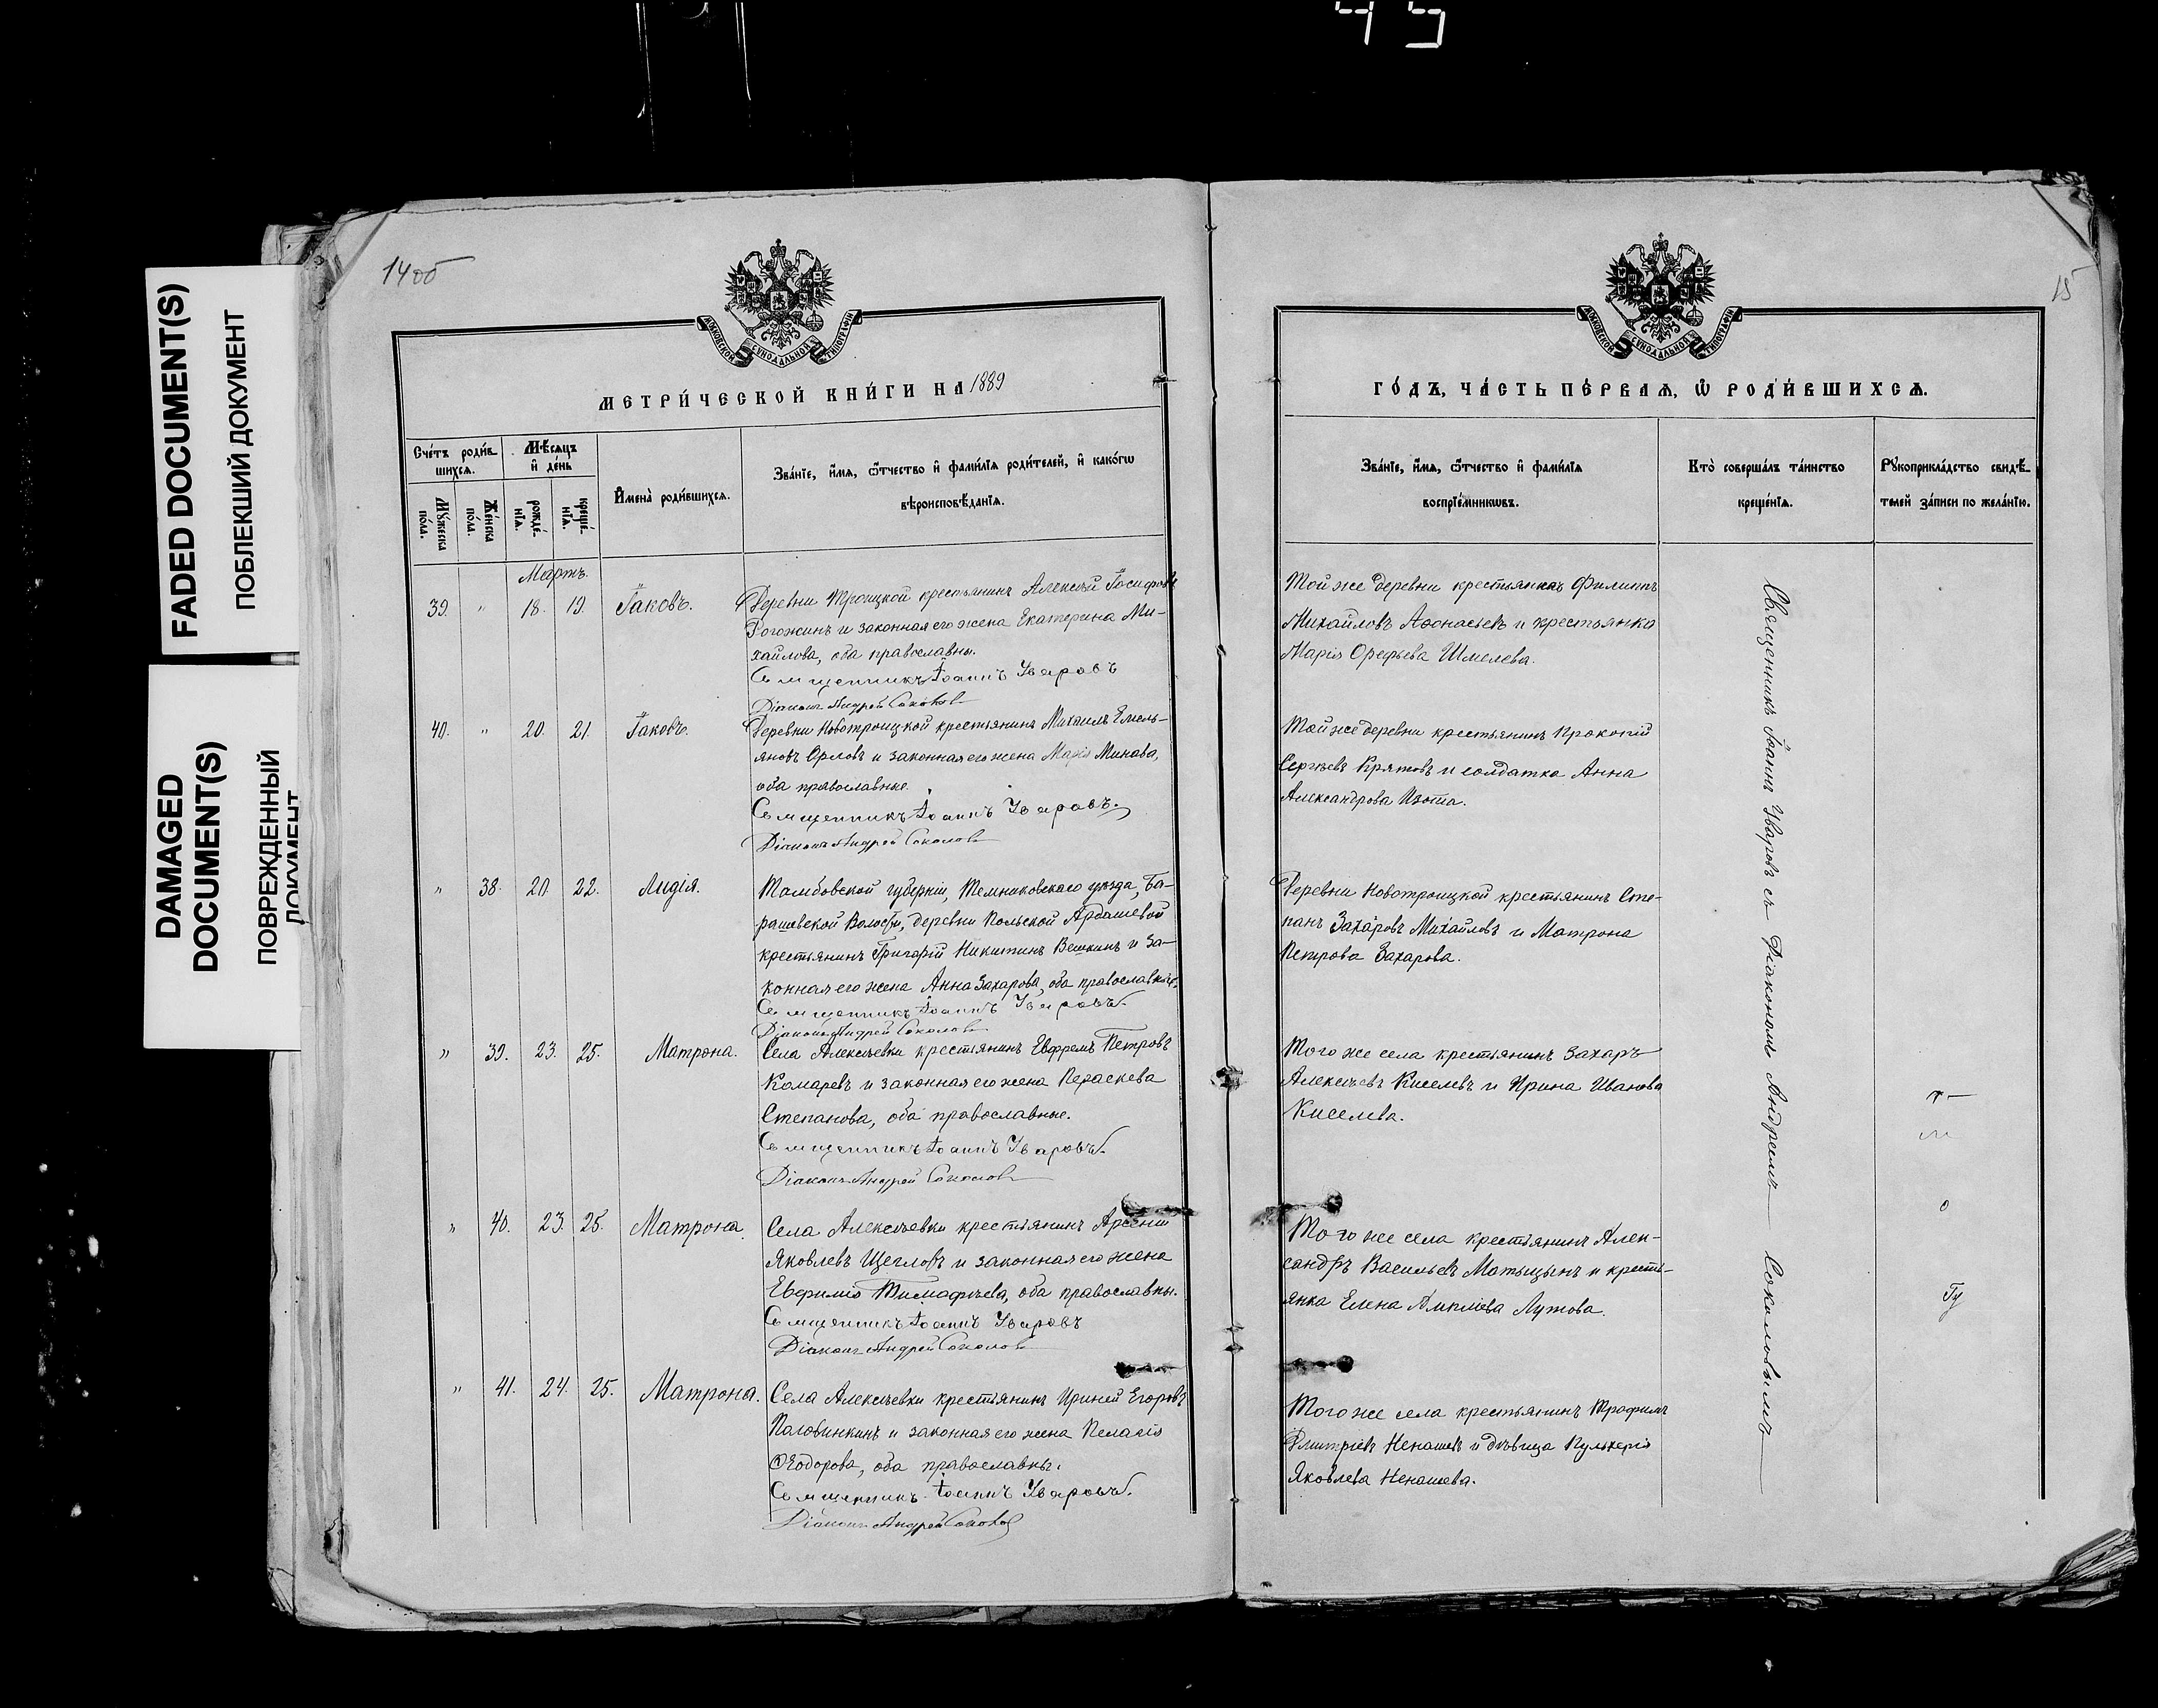 45
FADED DOCUMENT(S)
ПОБЛЕКШИЙ ДОКУМЕНТ
DAMAGED
DOCUMENT(S)
ПОВРЕЖДЕННЫЙ
ДОКУМЕНТ
14 об
МОСКОВСКОЙ СѴНОДАЛЬНОЙ ТИПОГРАФІИ
МЕТРИ́ЧЕСКОЙ КНИ́ГИ НА 1889
Сче́тъ роди́в-
шихсѧ.
Мѣ́сѧцъ
и҆ де́нь
Мꙋ́жеска
по́ла.
Же́нска
по́ла.
рожде́-
нїѧ.
креще́-
нїѧ.
И҆мена̀ роди́вшихсѧ.
Зва́нїе, и҆́мѧ, ѻ҆́тчество и҆ фами́лїѧ роди́телей, и҆ како́гѡ
вѣроисповѣ́данїѧ.
Мартъ.
39. " 18. 19. Іаковъ.
Деревни Троицкой крестьянинъ Алексѣй Іосифовъ
Рогожинъ и законная его жена Екатерина Ми-
хайлова, оба православны.
Священникъ Іоаннъ Уваровъ
Діаконъ Андрей Соколов
40. " 20. 21. Іаковъ.
Деревни Новотроицкой крестьянинъ Михаилъ Емель-
яновъ Орловъ и законная его жена Марія Минаева,
оба православные.
Священникъ Іоаннъ Уваровъ.
Діаконъ Андрей Соколов
" 38. 20. 22. Лидія.
Тамбовской губерніи, Темниковскаго уѣзда, Ба-
рашевской Волости, деревни Польской Ардашевой
крестьянинъ Григорій Никитинъ Вешкинъ и за-
конная его жена Анна Захарова, оба православные.
Священникъ Іоаннъ Уваровъ.
Діаконъ Андрей Соколов
" 39. 23. 25. Матрона.
Села Алексѣевки крестьянинъ Евфремъ Петровъ
Комаревъ и законная его жена Пераскева
Степанова, оба православные.
Священникъ Іоаннъ Уваровъ.
Діаконъ Андрей Соколов
" 40. 23. 25. Матрона.
Села Алексѣевки крестьянинъ Арсеній
Яковлевъ Щегловъ и законная его жена
Евфимія Тимофѣева, оба православны.
Священникъ Іоаннъ Уваровъ
Діаконъ Андрей Соколов
" 41. 24. 25. Матрона.
Села Алексѣевки крестьянинъ Ириней Егоровъ
Половинкинъ и законная его жена Пелагія
Ѳеодорова, оба православны.
Священникъ Іоаннъ Уваровъ.
Діаконъ Андрей Соколов
15
МОСКОВСКОЙ СѴНОДАЛЬНОЙ ТИПОГРАФІИ
ГО́ДЪ, ЧА́СТЬ ПЕ́РВАѦ, Ѡ҆ РОДИ́ВШИХСѦ.
Зва́нїе, и҆́мѧ, ѻ҆́тчество и҆ фами́лїѧ
воспрїе́мникѡвъ.
Кто̀ соверша́лъ та́инство
креще́нїѧ.
Рꙋкоприкла́дство свидѣ́-
телей за́писи по жела́нїю.
Той же деревни крестьянинъ Филиппъ
Михайловъ Аѳонасьевъ и крестьянка
Марія Орефьева Шмелева.
Той же деревни крестьянинъ Прокопій
Сергѣевъ Крятовъ и солдатка Анна
Александрова Изота.
Деревни Новотроицкой крестьянинъ Сте-
панъ Захаровъ Михайловъ и Матрона
Петрова Захарова.
Того же села крестьянинъ Захаръ
Алексѣевъ Киселевъ и Ирина Иванова
Киселева.
Того же села крестьянинъ Алек-
сандръ Васильевъ Матыцынъ и кресть-
янка Елена Лутова.
Того же села крестьянинъ Трофимъ
Дмитріевъ Ненашевъ и дѣвица Пульхерія
Яковлева Ненашева.
Священникъ Іоаннъ Уваровъ съ Діакономъ Андреемъ Соколовымъ